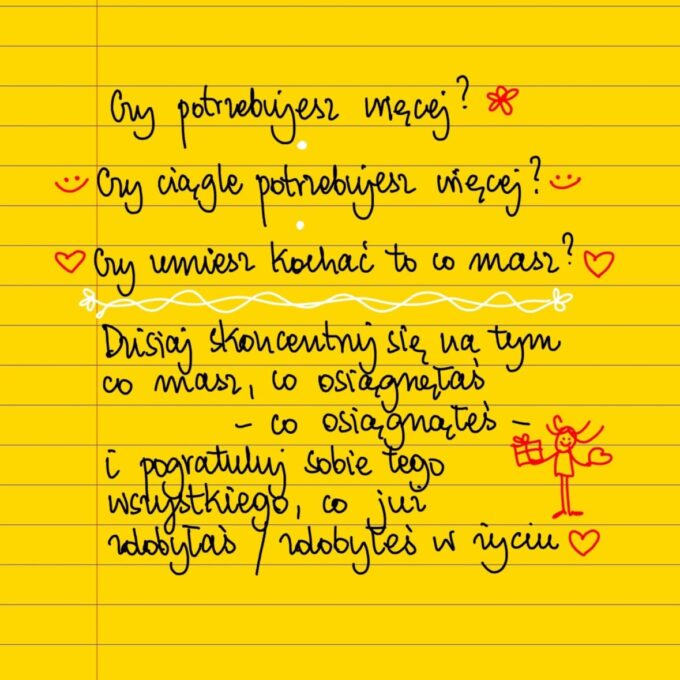 Czy potrzebujesz więcej?
Czy ciągle potrzebujesz więcej?
Czy umiesz kochać to co masz?
Dzisiaj skoncentruj się na tym
co masz, co osiągnęłaś
- co osiągnąłeś -
i pogratuluj sobie tego
wszystkiego, co już
zdobyłaś / zdobyłeś w życiu